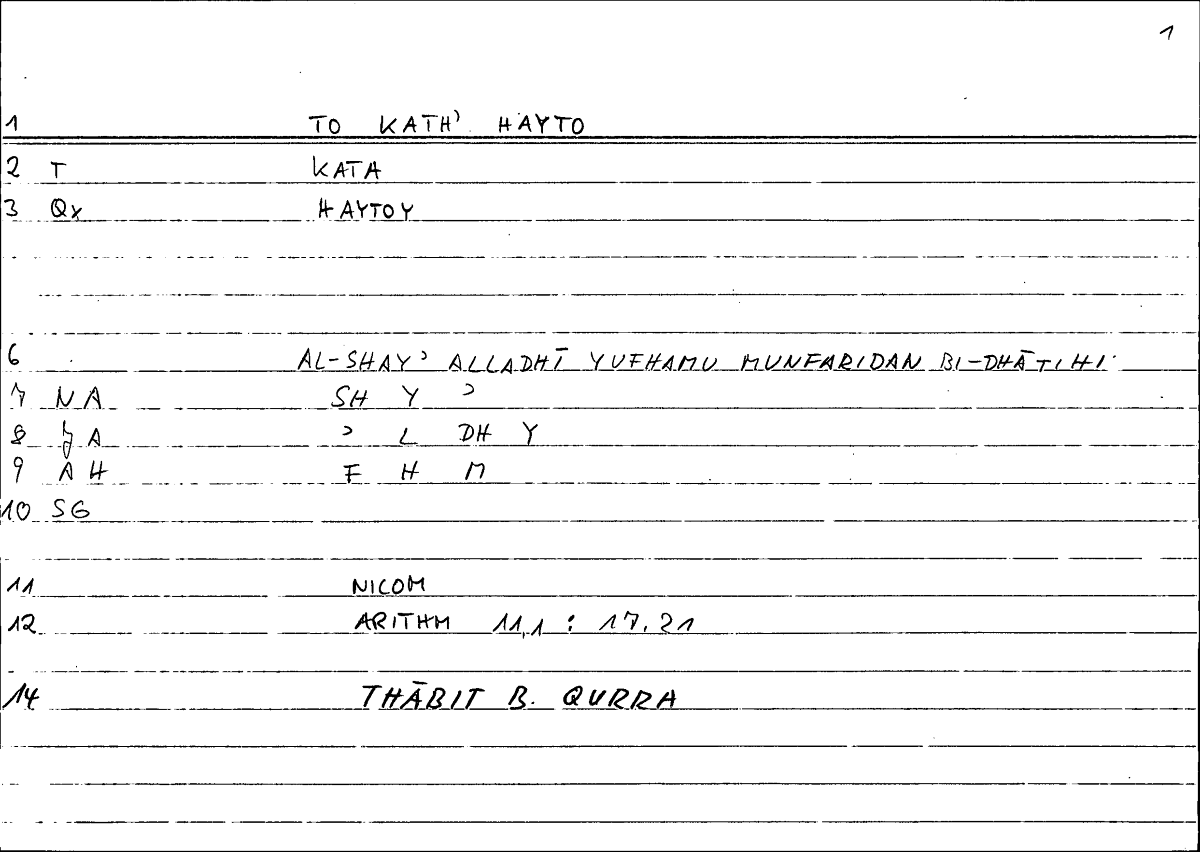 1
1 TO KATH' HAYTO
2 T KATA
3 Qx HAYTOY
6 AL-SHAY' ALLADHĪ YUFHAMU MUNFARIDAN BI-DHĀTIHI
7 NA SH Y '
8 A ' L DH Y
9 AH F H M
10 SG
11 NICOM
12 ARITHM 11,1 : 17.21
14 THĀBIT B. QURRA